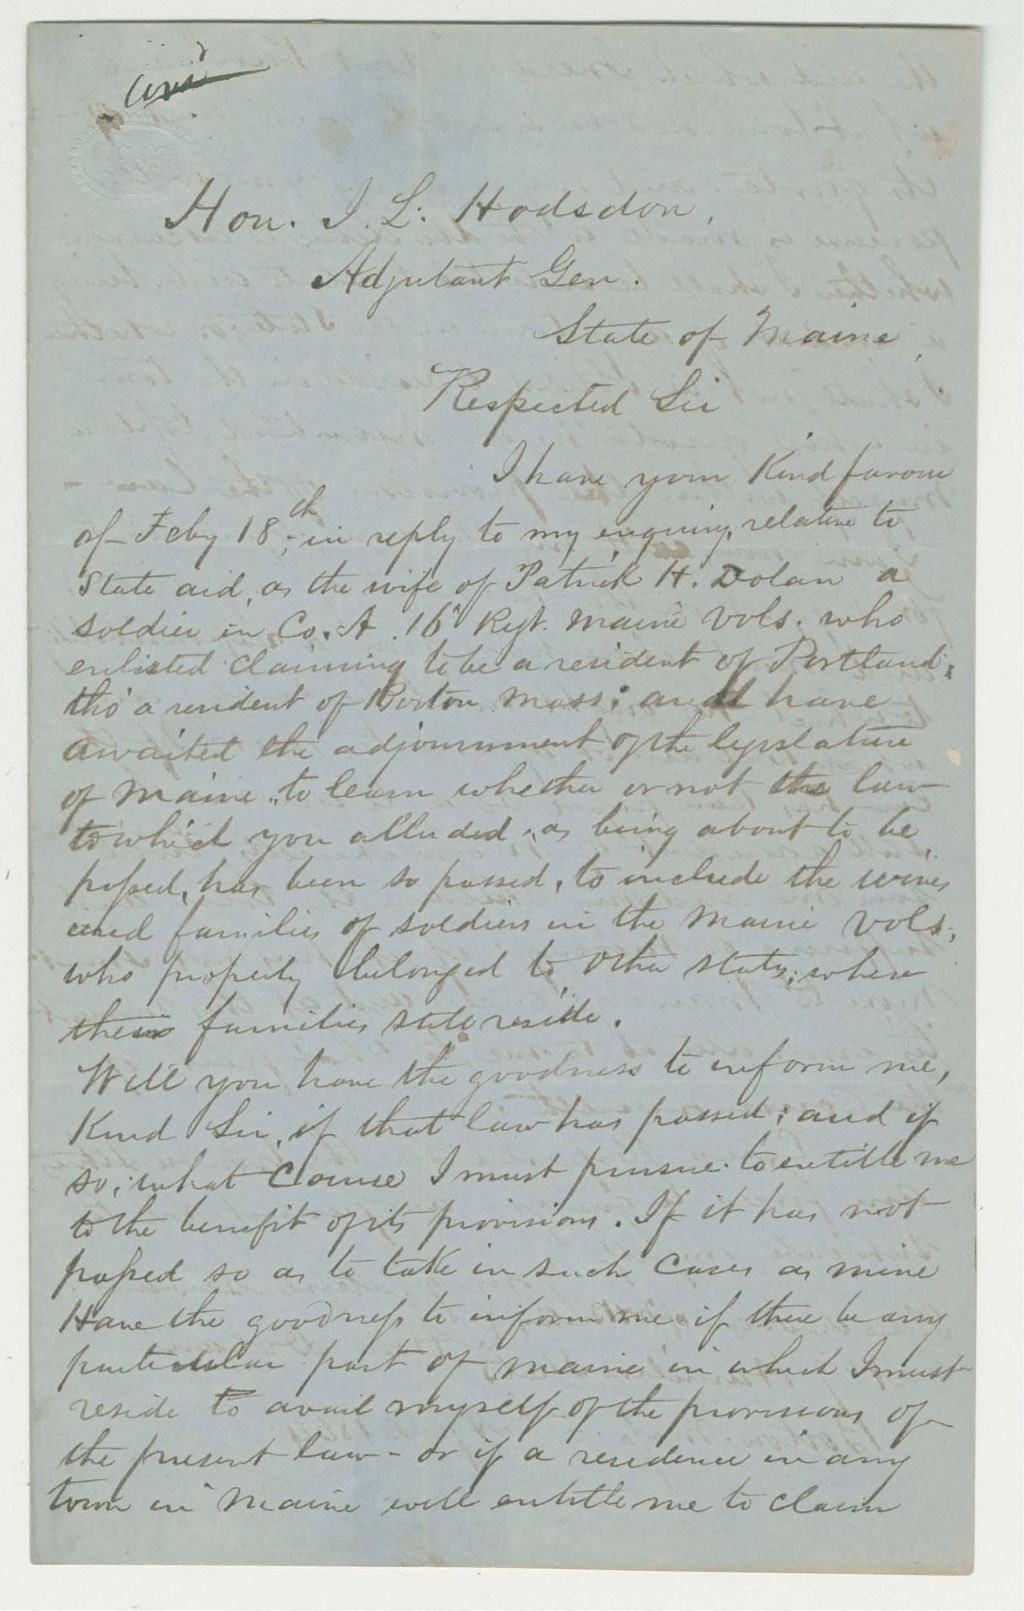 Hon. J. L. Hodsdon,
Adjutant Gen.
State of Maine,
Respected Sir
I have your Kind favour
of Feby 18th, in reply to my enquiry, relative to
State aid, as the wife of Patrick H. Dolan a
soldier in Co. A. 16th Regt. Maine Vols. who
enlisted claiming to be a resident of Portland,
tho' a resident of Boston Mass; and have
awaited the adjournment of the legislature
of Maine, to learn whether or not the law
to which you alluded, as being about to be,
passed, has been so passed, to include the wives
and families of soldiers in the Maine Vols,
who properly belonged to other states, where
their families still reside.
Will you have the goodness to inform me,
Kind Sir, if that law has passed; and if
so, what Course I must pursue to entitle me
to the benefit of its provisions. If it has not
passed so as to take in such Cases as mine
Have the goodness to inform me if there be any
particular part of Maine in which I must
reside to avail myself of the provisions of
the present law - or if a residence in any
town in Maine will entitle me to claim